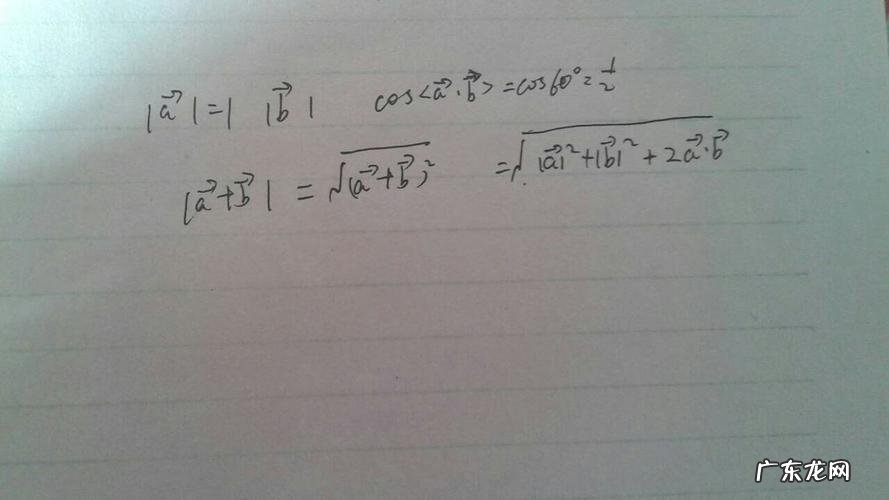 |a⃗|=1 |b⃗| cos<a⃗·b⃗>=cos60°=1/2
|a⃗+b⃗| = √(a⃗+b⃗)² =√|a⃗|²+|b⃗|²+2a⃗·b⃗
广东龙网